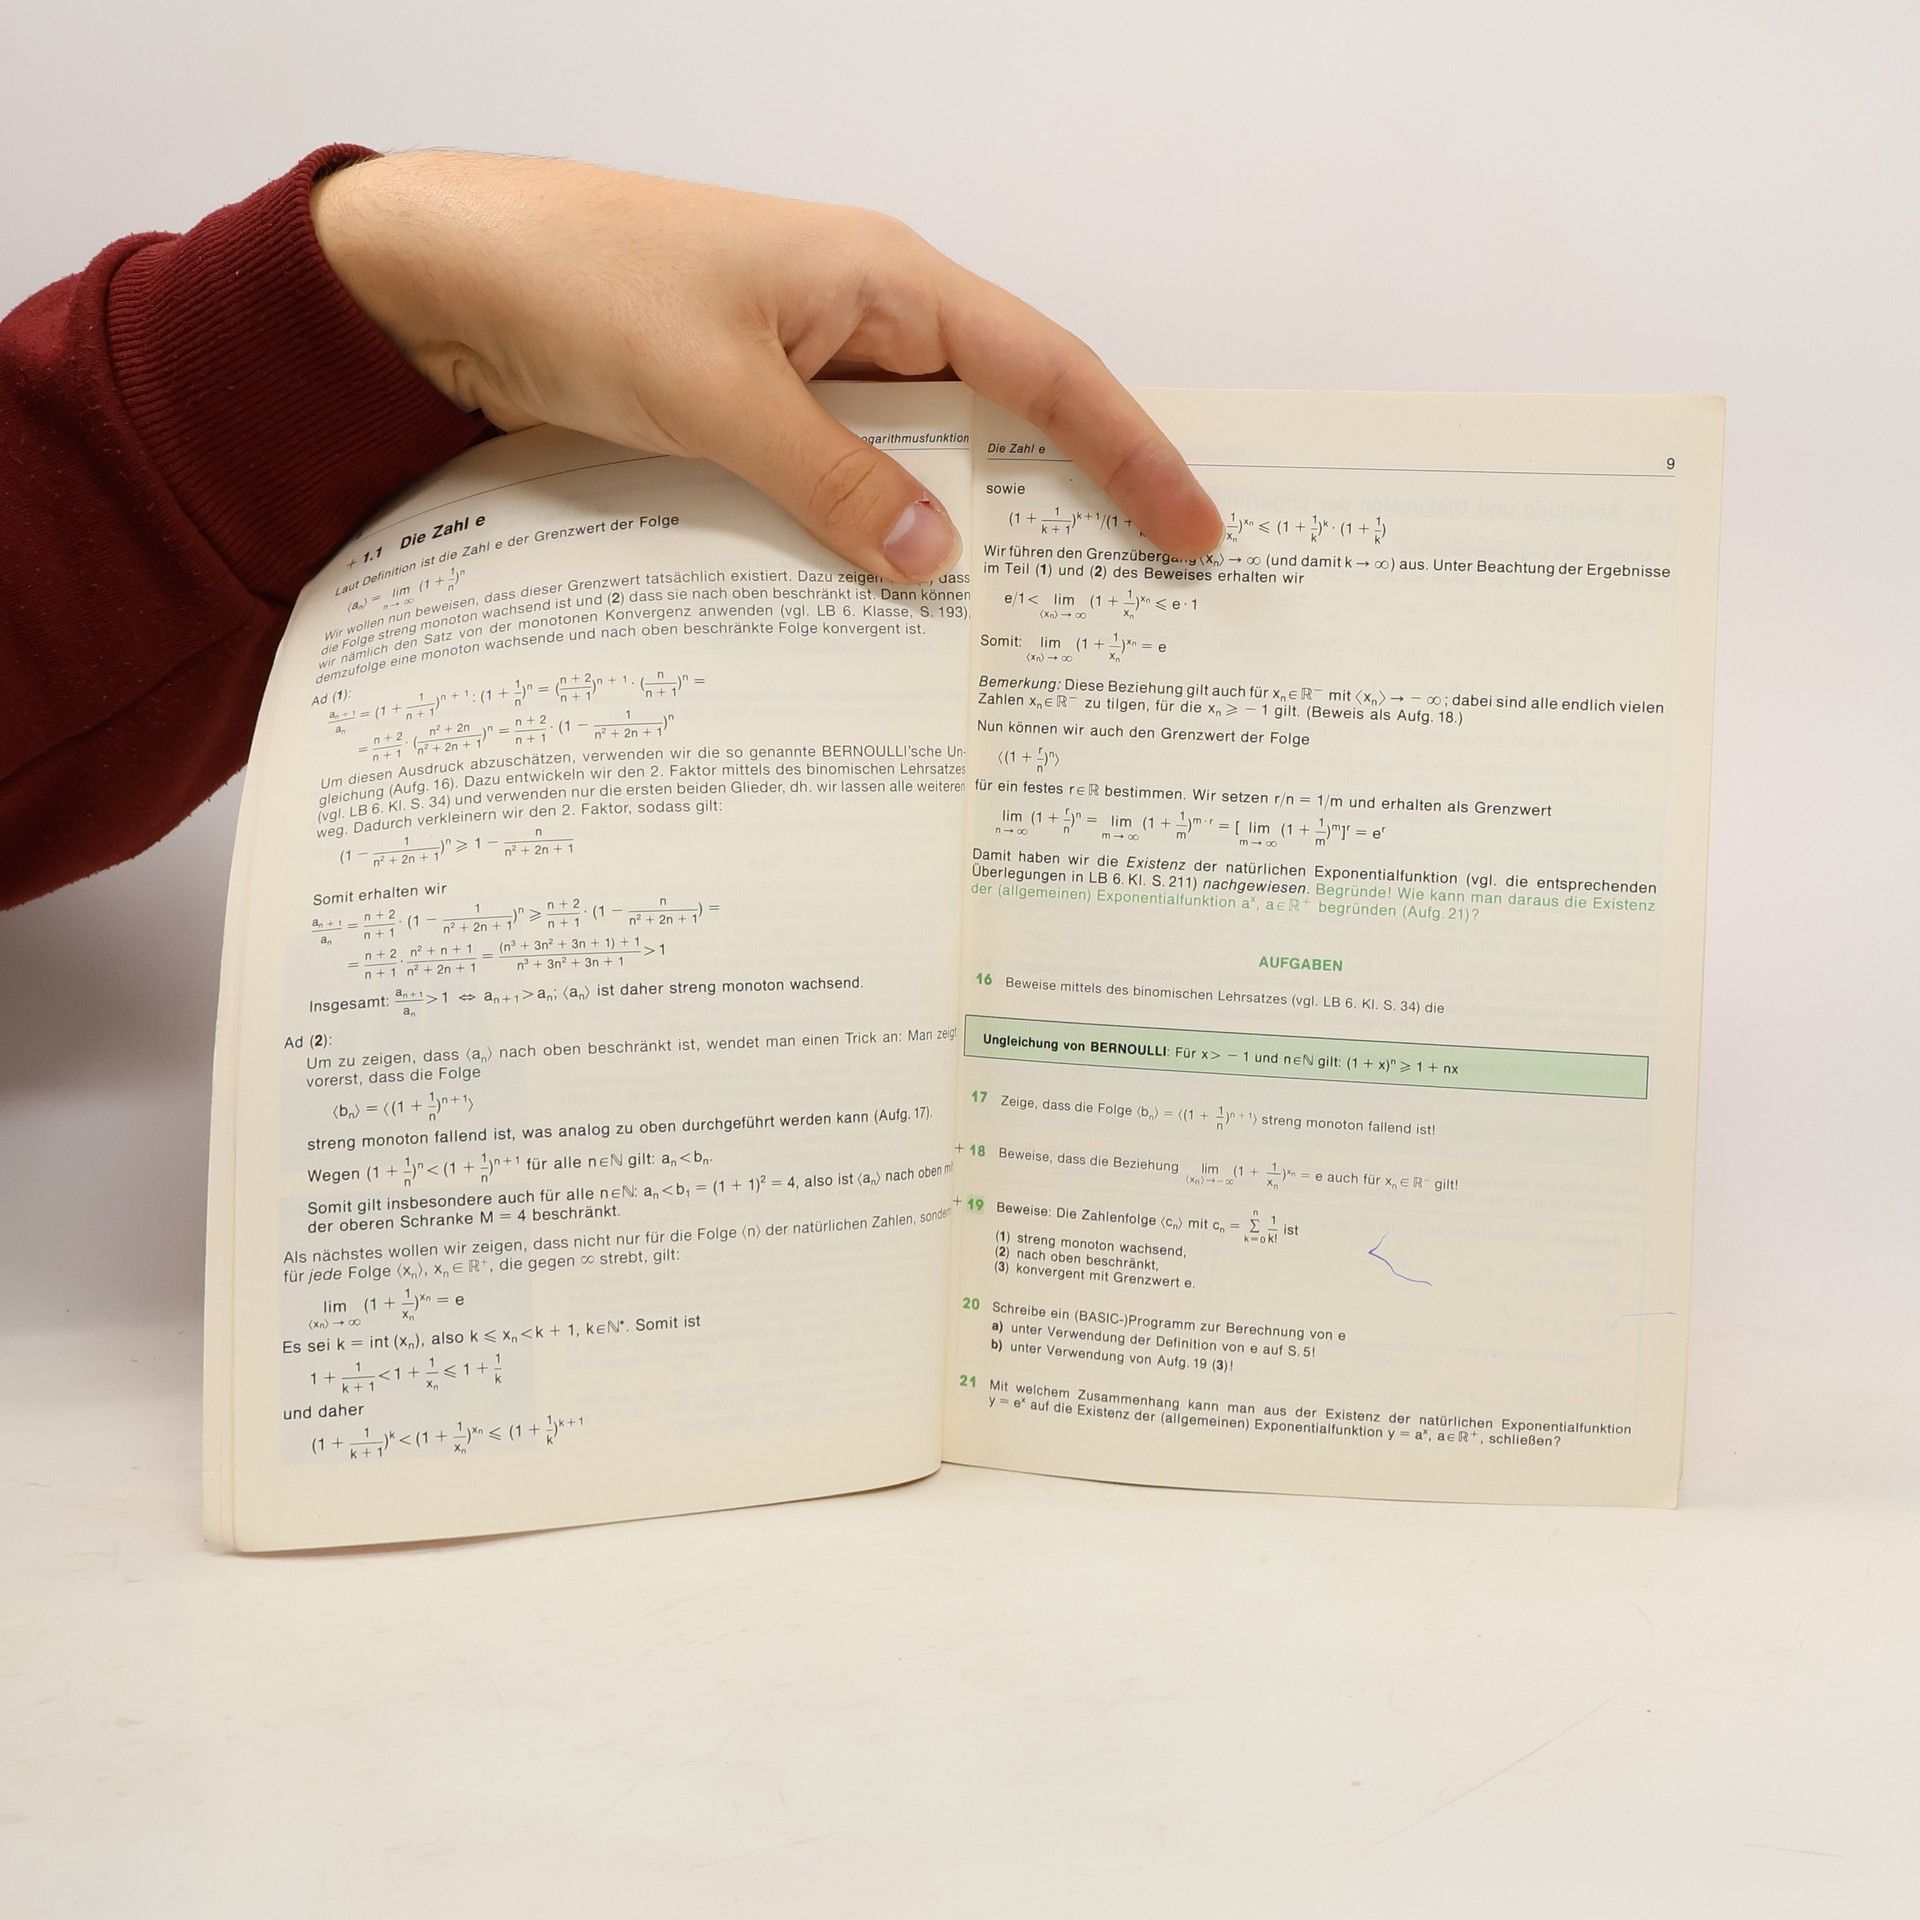 ogarithmusfunktion
+ 1.1 Die Zahl e
Laut Definition ist die Zahl e der Grenzwert der Folge
⟨aₙ⟩ = lim n→∞ (1 + 1/n)ⁿ
Wir wollen nun beweisen, dass dieser Grenzwert tatsächlich existiert. Dazu zeigen dass
die Folge streng monoton wachsend ist und (2) dass sie nach oben beschränkt ist. Dann können
wir nämlich den Satz von der monotonen Konvergenz anwenden (vgl. LB 6. Klasse, S. 193),
demzufolge eine monoton wachsende und nach oben beschränkte Folge konvergent ist.
Ad (1):
aₙ₊₁/aₙ = (1 + 1/(n+1))ⁿ⁺¹ : (1 + 1/n)ⁿ = ((n+2)/(n+1))ⁿ⁺¹ · (n/(n+1))ⁿ =
= (n+2)/(n+1) · ((n² + 2n)/(n² + 2n + 1))ⁿ = (n+2)/(n+1) · (1 − 1/(n² + 2n + 1))ⁿ
Um diesen Ausdruck abzuschätzen, verwenden wir die so genannte BERNOULLI'sche Un-
gleichung (Aufg. 16). Dazu entwickeln wir den 2. Faktor mittels des binomischen Lehrsatzes
(vgl. LB 6. Kl. S. 34) und verwenden nur die ersten beiden Glieder, dh. wir lassen alle weiteren
weg. Dadurch verkleinern wir den 2. Faktor, sodass gilt:
(1 − 1/(n² + 2n + 1))ⁿ ⩾ 1 − n/(n² + 2n + 1)
Somit erhalten wir
aₙ₊₁/aₙ = (n+2)/(n+1) · (1 − 1/(n² + 2n + 1))ⁿ ⩾ (n+2)/(n+1) · (1 − n/(n² + 2n + 1)) =
= (n+2)/(n+1) · (n² + n + 1)/(n² + 2n + 1) = ((n³ + 3n² + 3n + 1) + 1)/(n³ + 3n² + 3n + 1) > 1
Insgesamt: aₙ₊₁/aₙ > 1 ⇔ aₙ₊₁ > aₙ; ⟨aₙ⟩ ist daher streng monoton wachsend.
Ad (2):
Um zu zeigen, dass ⟨aₙ⟩ nach oben beschränkt ist, wendet man einen Trick an: Man zeigt
vorerst, dass die Folge
⟨bₙ⟩ = ⟨(1 + 1/n)ⁿ⁺¹⟩
streng monoton fallend ist, was analog zu oben durchgeführt werden kann (Aufg. 17).
Wegen (1 + 1/n)ⁿ < (1 + 1/n)ⁿ⁺¹ für alle n∈ℕ gilt: aₙ < bₙ.
Somit gilt insbesondere auch für alle n∈ℕ: aₙ < b₁ = (1 + 1)² = 4, also ist ⟨aₙ⟩ nach oben mi
der oberen Schranke M = 4 beschränkt.
Als nächstes wollen wir zeigen, dass nicht nur für die Folge ⟨n⟩ der natürlichen Zahlen, sonder
für jede Folge ⟨xₙ⟩, xₙ∈ℝ⁺, die gegen ∞ strebt, gilt:
lim ⟨xₙ⟩→∞ (1 + 1/xₙ)^xₙ = e
Es sei k = int (xₙ), also k ⩽ xₙ < k + 1, k∈ℕ*. Somit ist
1 + 1/(k+1) < 1 + 1/xₙ ⩽ 1 + 1/k
und daher
(1 + 1/(k+1))ᵏ < (1 + 1/xₙ)^xₙ ⩽ (1 + 1/k)ᵏ⁺¹
Die Zahl e 9
sowie
(1 + 1/(k+1))ᵏ⁺¹/(1 + 1/xₙ)^xₙ ⩽ (1 + 1/k)ᵏ · (1 + 1/k)
Wir führen den Grenzübergang ⟨xₙ⟩ → ∞ (und damit k → ∞) aus. Unter Beachtung der Ergebnisse
im Teil (1) und (2) des Beweises erhalten wir
e/1 < lim ⟨xₙ⟩→∞ (1 + 1/xₙ)^xₙ ⩽ e · 1
Somit: lim ⟨xₙ⟩→∞ (1 + 1/xₙ)^xₙ = e
Bemerkung: Diese Beziehung gilt auch für xₙ∈ℝ⁻ mit ⟨xₙ⟩ → − ∞; dabei sind alle endlich vielen
Zahlen xₙ∈ℝ⁻ zu tilgen, für die xₙ ⩾ − 1 gilt. (Beweis als Aufg. 18.)
Nun können wir auch den Grenzwert der Folge
⟨(1 + r/n)ⁿ⟩
für ein festes r∈ℝ bestimmen. Wir setzen r/n = 1/m und erhalten als Grenzwert
lim n→∞ (1 + r/n)ⁿ = lim m→∞ (1 + 1/m)ᵐ·ʳ = [ lim m→∞ (1 + 1/m)ᵐ]ʳ = eʳ
Damit haben wir die Existenz der natürlichen Exponentialfunktion (vgl. die entsprechenden
Überlegungen in LB 6. Kl. S. 211) nachgewiesen. Begründe! Wie kann man daraus die Existenz
der (allgemeinen) Exponentialfunktion aˣ, a∈ℝ⁺ begründen (Aufg. 21)?
AUFGABEN
16 Beweise mittels des binomischen Lehrsatzes (vgl. LB 6. Kl. S. 34) die
Ungleichung von BERNOULLI: Für x > − 1 und n∈ℕ gilt: (1 + x)ⁿ ⩾ 1 + nx
17 Zeige, dass die Folge ⟨bₙ⟩ = ⟨(1 + 1/n)ⁿ⁺¹⟩ streng monoton fallend ist!
+ 18 Beweise, dass die Beziehung lim ⟨xₙ⟩→−∞ (1 + 1/xₙ)^xₙ = e auch für xₙ∈ℝ⁻ gilt!
+ 19 Beweise: Die Zahlenfolge ⟨cₙ⟩ mit cₙ = Σ k=0 n 1/k! ist
(1) streng monoton wachsend,
(2) nach oben beschränkt,
(3) konvergent mit Grenzwert e.
20 Schreibe ein (BASIC-)Programm zur Berechnung von e
a) unter Verwendung der Definition von e auf S. 5!
b) unter Verwendung von Aufg. 19 (3)!
21 Mit welchem Zusammenhang kann man aus der Existenz der natürlichen Exponentialfunktion
y = eˣ auf die Existenz der (allgemeinen) Exponentialfunktion y = aˣ, a∈ℝ⁺, schließen?